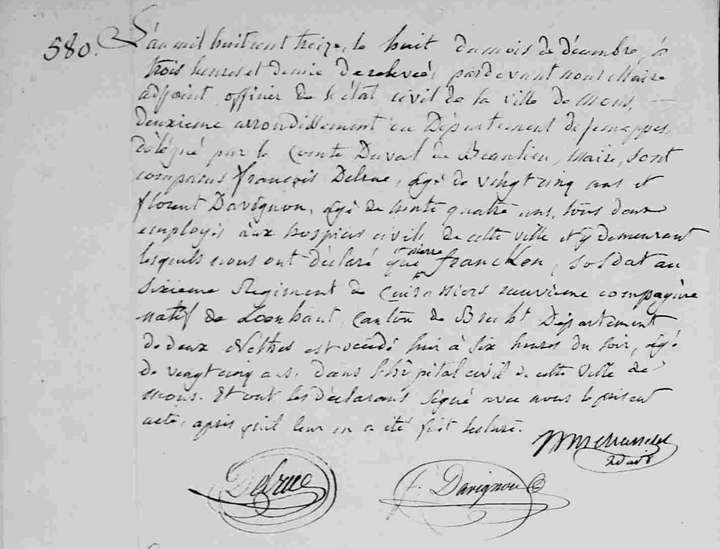 580. L'an mil huit cent treize, le huit du mois de décembre, à
trois heures et demie de relevée, pardevant nous Maire
adjoint, officier de l'état civil de la ville de Mons,
deuxieme arrondissement du Département de jemappes
délégué par le Comte Duval de Beaulieu, Maire, sont
comparus françois Delrue, agé de vingt cinq ans et
florent Davignon, agé de trente quatre ans, tous deux
employés aux hospices civils de cette ville et y demeurant
lesquels nous ont déclaré que pierre francken, soldat au
sixieme Régiment de Cuirassiers neuvieme compagnie
natif de Loenhout Canton de Brecht Département
de deux Nethes est décédé hier à six heures du soir, agé
de vingt cinq ans. dans l'hôpital civil de cette ville de
mons. Et ont les déclarans signé avec nous le présent
acte, après qu'il leur en a été fait lecture.
Delrue f. Davignon